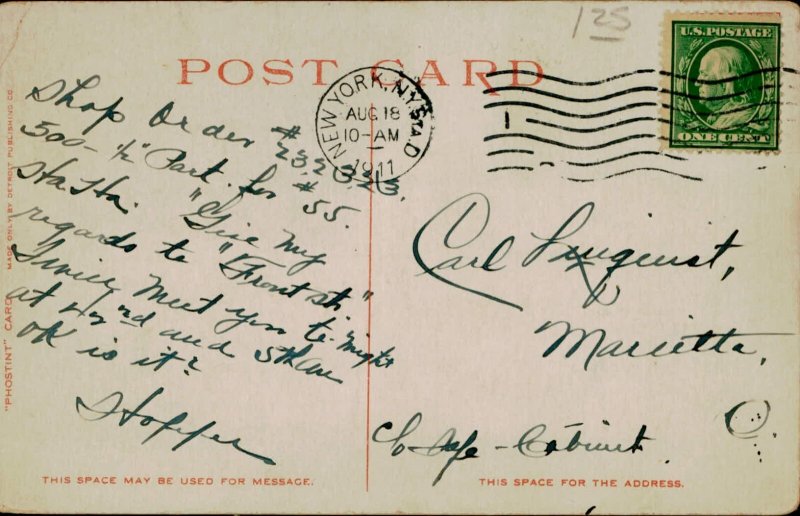 125
POST CARD
U.S. POSTAGE
ONE CENT
NEW YORK, N.Y. STA. D
AUG 18
10-AM
1911
Shop Order # 232323.
500- ½" Part. for #55.
Ha Ha. "Give my
regards to "Front st."
Smile Meet you to-night
at 42nd and 5th Ave
OK is it?
Hopper
Carl Linquist,
Marietta,
c/o Safe-Cabinet
THIS SPACE MAY BE USED FOR MESSAGE.
THIS SPACE FOR THE ADDRESS.
"PHOSTINT" CARD MADE ONLY BY DETROIT PUBLISHING CO.